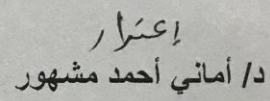 إعتزار
د/ أماني أحمد مشهور